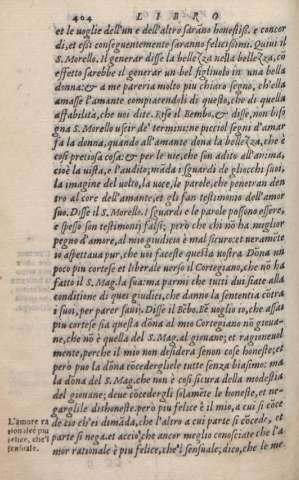 404 LIBRO
et le voglie dell'un e dell'altro sarāno honestiss. e concor
di, et essi conseguentemente saranno felicissimi. Quiui il
S. Morello. Il generar disse la bellezza nella bellezza, cō
effetto sarebbe il generar un bel figliuolo in una bella
donna: & a me pareria molto piu chiaro segno, ch'ella
amasse l'amante compiacendoli di questo, che di quella
affabilità, che uoi dite. Rise il Bembo, & disse, non biso
gna S. Morello uscir de' termini: ne piccioł segni d'amar
fa la donna, quando all'amante dona la bellezza, che è
cosi preciosa cosa: & per le uie, che son adito all'anima,
cioè la uista, e l'audito; māda i sguardi de gliocchi suoi,
la imagine del uolto, la uoce, le parole, che penetran den
tro al core dell'amante, et gli fan testimonio dell'amor
suo. Disse il S. Morello. i sguardi e le parole possono essere,
e spesso son testimonij falsi; però che chi nō ha miglior
pegno d'amore, al mio giudicio è mal sicuro: et ueramēte
io aspettaua pur, che uoi faceste questa uostra Dōna un
poco piu cortese et liberale uerso il Cortegiano, che nō ha
fatto il S. Mag. la sua: ma parmi che tutti dui siate alla
conditione di quei giudici, che danno la sententia cōtra
i suoi, per parer saui. Disse il Bēbo. Bē voglio io, che assai
piu cortese sia questa dōna al mio Cortegiano nō gioua-
ne, che nō è quella del S. Mag. al giouane; et ragioneuol
mente, perche il mio non desidera se non cose honeste; et
però puo la dōna cōcedergliele tutte senza biasimo: ma
la dōna del S. Mag. che non è cosi sicura della modestia
del giouane; deue cōcedergli solamēte le honeste, et ne-
gargli le dishoneste. però piu felice è il mio, a cui si cōce
de ciò ch'ei dimāda, che l'altro a cui parte si cōcede, et
parte si nega. et acciò, che ancor meglio conosciate che l'a
mor rationale è piu felice, che'l sensuale; dico, che le me
L'amore ra
tionale è piu
felice, che'l
sensuale.